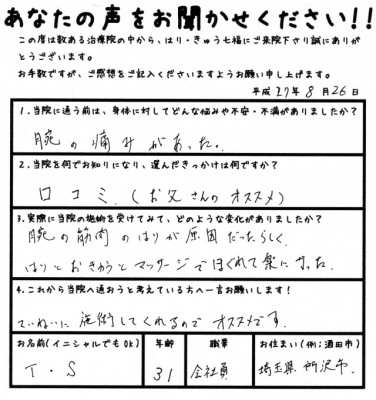 あなたの声をお聞かせください!!
この度は数ある治療院の中から、はり・きゅう七福にご来院下さり誠にありが
とうございます。
お手数ですが、ご感想をご記入くださいますようお願い申し上げます。
平成 27年 8月 26日
1.当院に通う前は、身体に対してどんな悩みや不安・不満がありましたか?
腕の痛みがあった。
2.当院を何でお知りになり、選んだきっかけは何ですか?
口コミ.(お父さんのオススメ)
3.実際に当院の施術を受けてみて、どのような変化がありましたか?
腕の筋肉のはりが原因だったらしく、
はりとおきゅうとマッサージでほぐれて楽になった.
4.これから当院へ通おうと考えている方へ一言お願いします!
ていねいに施術してくれるのでオススメです.
お名前(イニシャルでもOK) 年齢 職業 お住まい(例:酒田市)
T・S 31 会社員 埼玉県所沢市.